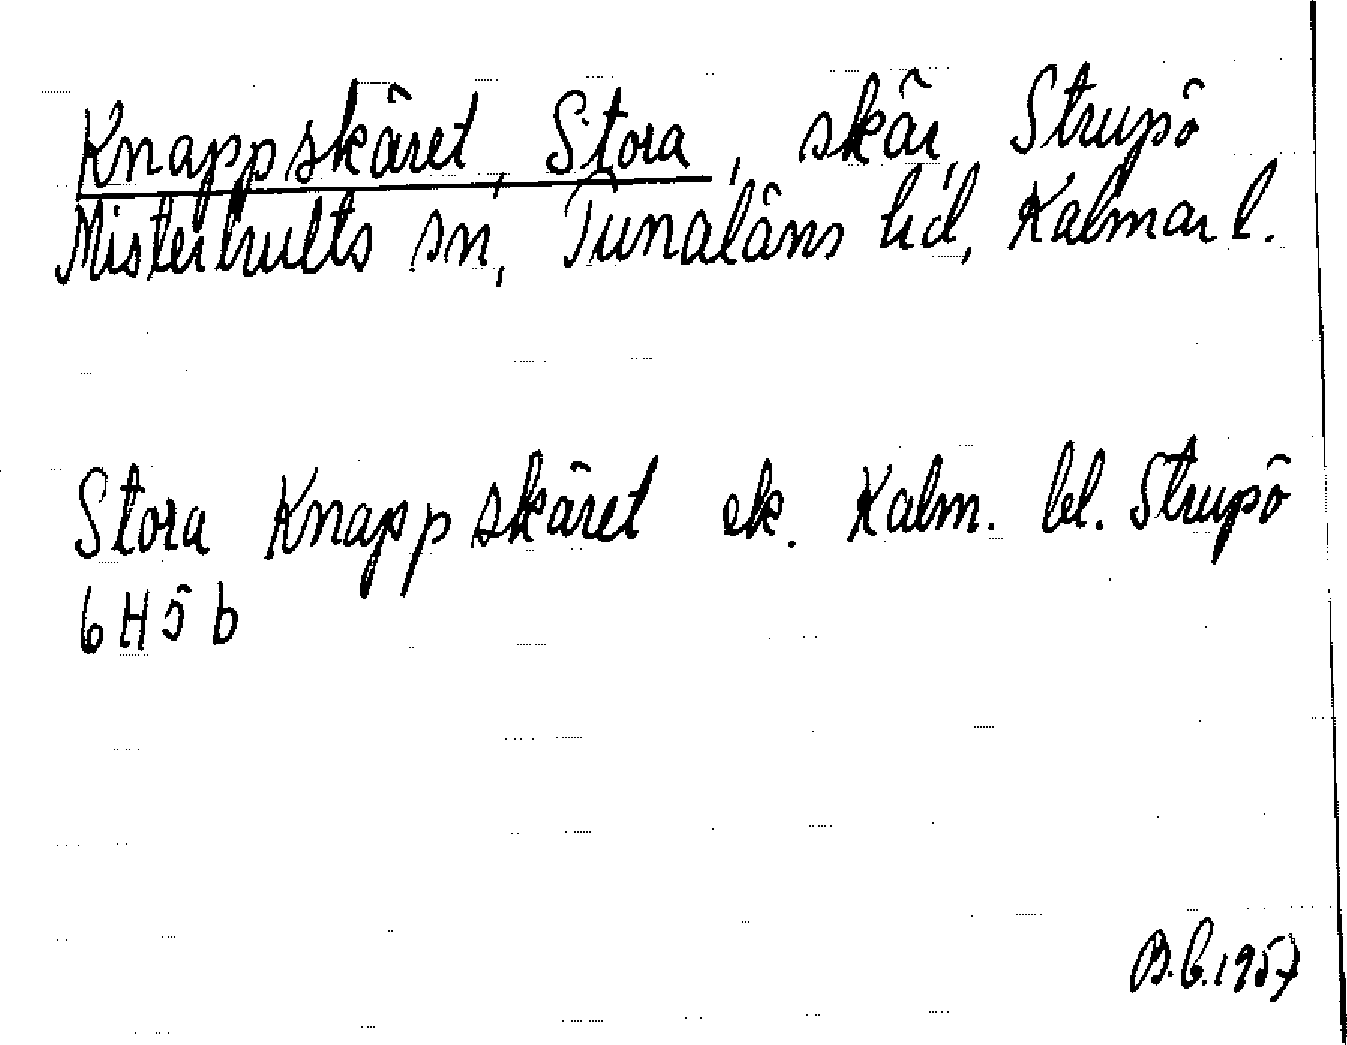 Knappskäret, Stora, skär, Strupö
Misterhults sn, Tunaläns hd, Kalmar l.
Stora Knappskäret ek. Kalm. bl. Strupö
6H5b
B.C. 1957